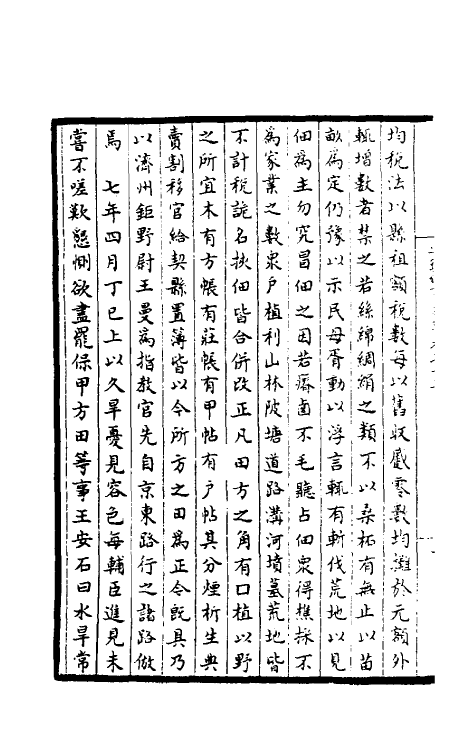 均稅法以縣租額稅數每以舊收蹙零數均灘於元額外
輒增數者禁之若絲綿綢絹之類不以桑柘有無止以苗
畝為定仍豫以示民毋胥動以浮言輒有斬伐荒地以見
佃為主勿究冒佃之因若瘠鹵不毛聽占佃眾得樵採不
為家業之數眾戶植利山林陂塘道路溝河墳墓荒地皆
不計稅詭名挾佃皆合併改正凡田方之角有口植以野
之所宜木有方帳有莊帳有甲帖有戶帖其分煙析生典
賣割移官給契縣置簿皆以今所方之田為正令既具乃
以濟州鉅野尉王曼為指教官先自京東路行之諸路倣
焉　七年四月丁巳上以久旱憂見容色每輔臣進見未
嘗不嗟歎懇惻欲盡罷保甲方田等事王安石曰水旱常